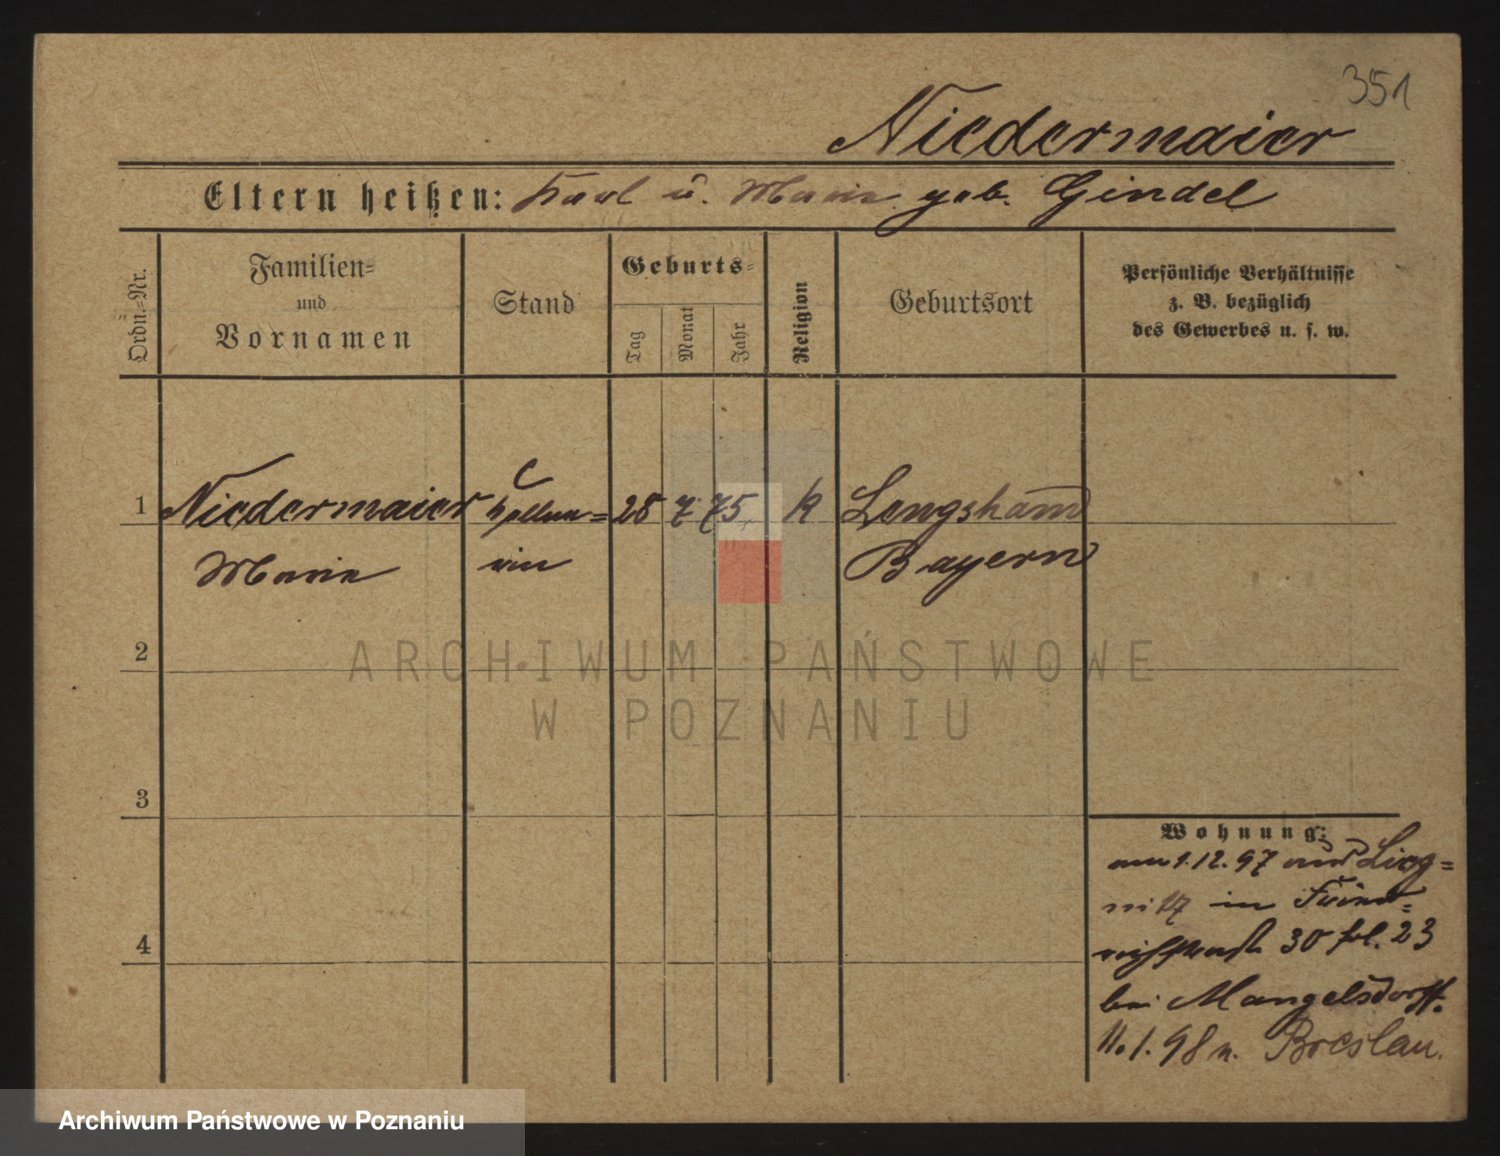 351
Niedermaier
Eltern heißen: Karl u. Marie geb. Gindel
Ordn.=Nr.
Familien=
und
Vornamen
Stand
Geburts=
Tag
Monat
Jahr
Religion
Geburtsort
Persönliche Verhältnisse
z. B. bezüglich
des Gewerbes u. s. w.
1 Niedermaier Kellne= 28 7 75 k Lengsham
Marie rin Bayern
2
ARCHIWUM PAŃSTWOWE
W POZNANIU
3
Wohnung:
am 1.12.97 aus Lieg=
nitz in Fried=
richstraße 30 fol. 23
bei Mangelsdorff.
11.1.98 n. Breslau.
4
Archiwum Państwowe w Poznaniu